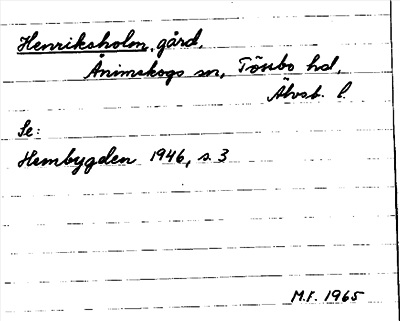 Henriksholm, gård,
Ånimskogs sn, Tössbo hd,
Älvsb. l
Se:
Hembygden 1946, s. 3
M.F. 1965